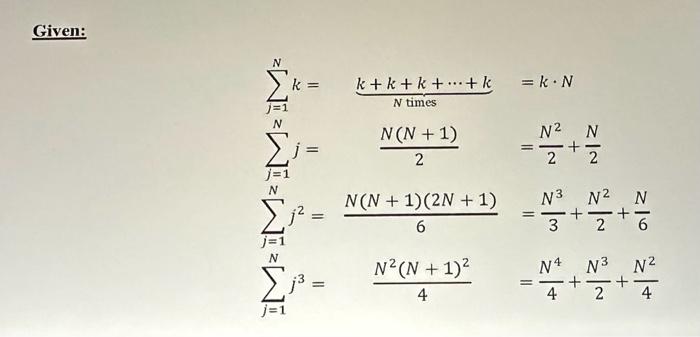 Given:
\sum_{j=1}^{N} k = \underbrace{k + k + k + \cdots + k}_{N \text{ times}} = k \cdot N
\sum_{j=1}^{N} j = \frac{N(N + 1)}{2} = \frac{N^2}{2} + \frac{N}{2}
\sum_{j=1}^{N} j^2 = \frac{N(N + 1)(2N + 1)}{6} = \frac{N^3}{3} + \frac{N^2}{2} + \frac{N}{6}
\sum_{j=1}^{N} j^3 = \frac{N^2(N + 1)^2}{4} = \frac{N^4}{4} + \frac{N^3}{2} + \frac{N^2}{4}